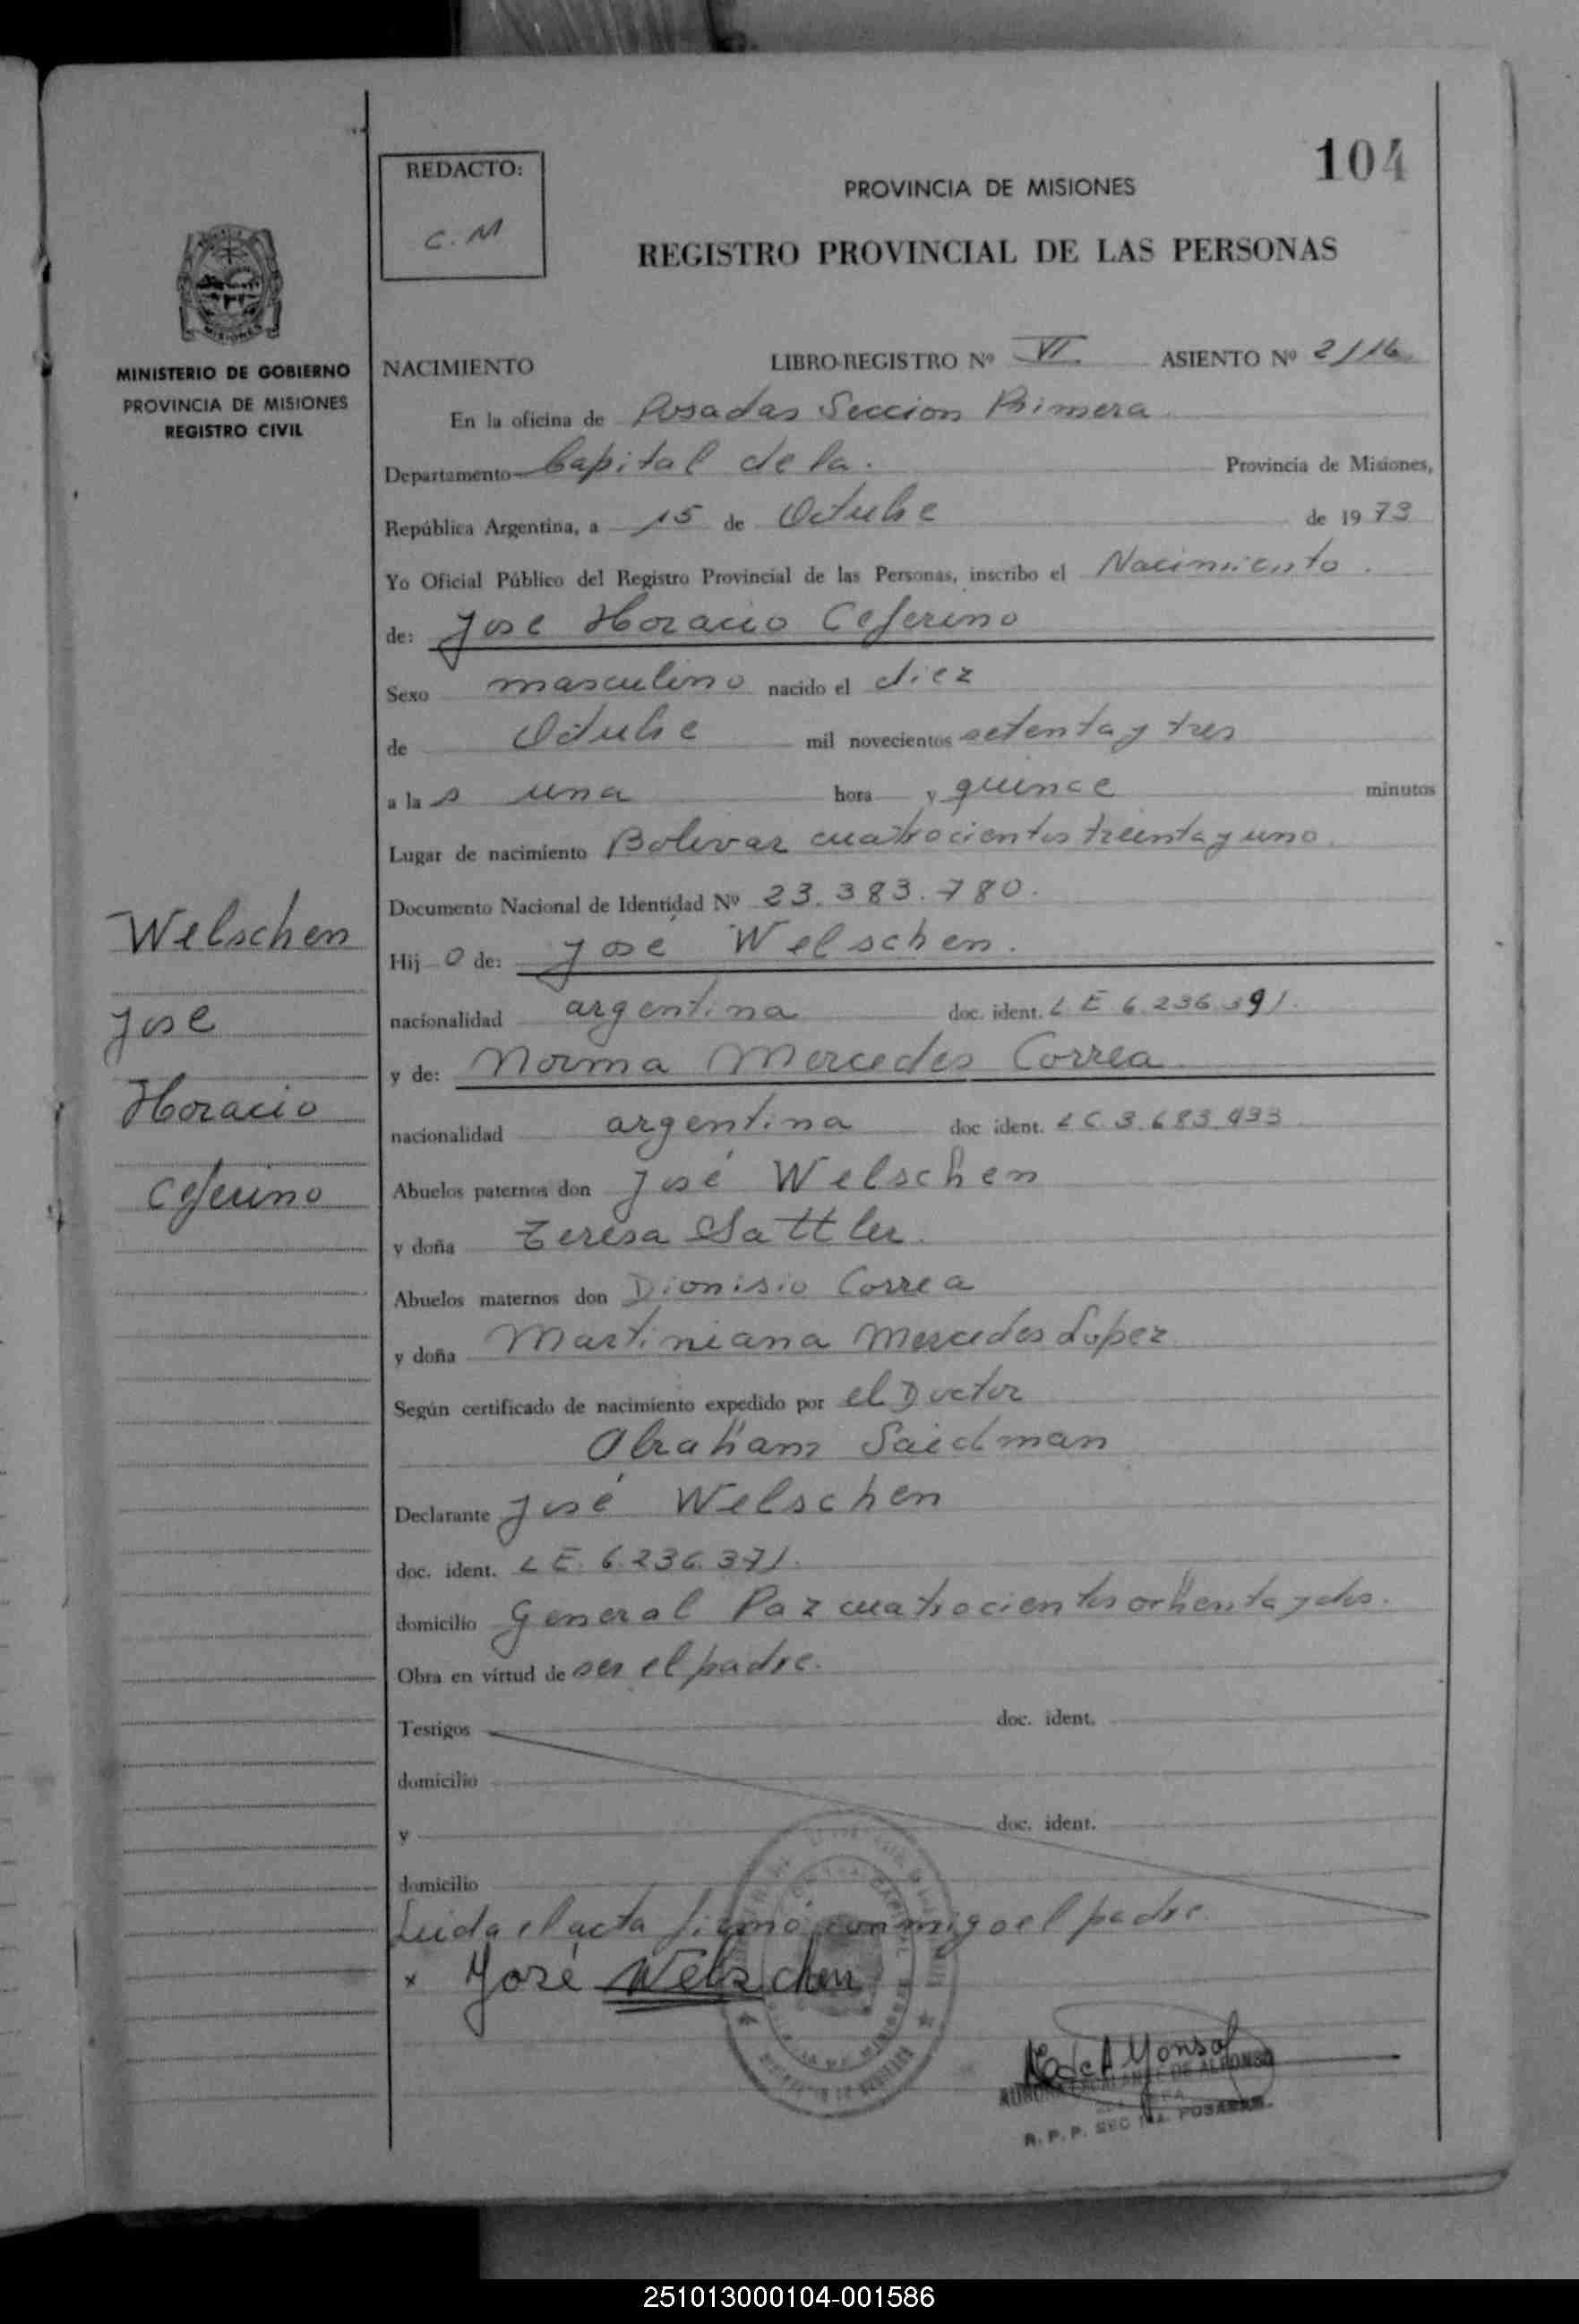 104
REDACTO:
C. M
PROVINCIA DE MISIONES
REGISTRO PROVINCIAL DE LAS PERSONAS
MISIONES
MINISTERIO DE GOBIERNO
PROVINCIA DE MISIONES
REGISTRO CIVIL
NACIMIENTO LIBRO-REGISTRO Nº VI. ASIENTO Nº 2116
En la oficina de Posadas Seccion Primera
Departamento Capital de la. Provincia de Misiones,
República Argentina, a 15 de Octubre de 1973
Yo Oficial Público del Registro Provincial de las Personas, inscribo el Nacimiento.
de: Jose Horacio Ceferino
Sexo masculino nacido el diez
de Octubre mil novecientos setenta y tres
a la s una hora y quince minutos
Lugar de nacimiento Bolivar cuatrocientos treinta y uno.
Documento Nacional de Identidad Nº 23.383.780.
Welschen
Jose
Horacio
Ceferino
Hij o de: José Welschen.
nacionalidad argentina doc. ident. L E 6.236.391.
y de: Norma Mercedes Correa
nacionalidad argentina doc ident. L C. 3.683.933
Abuelos paternos don José Welschen
y doña Teresa Sattler.
Abuelos maternos don Dionisio Correa
y doña Martiniana Mercedes Lopez
Según certificado de nacimiento expedido por el Doctor
Abraham Saidman
Declarante José Welschen
doc. ident. L E. 6.236.371.
domicilio General Paz cuatrocientos ochenta y dos.
Obra en virtud de ser el padre.
Testigos doc. ident.
domicilio
y doc. ident.
domicilio
Leida el acta firmó conmigo el padre
x José Welschen
DE ALFONSO
R. P. P. SEC 1ra. POSADAS.
251013000104-001586